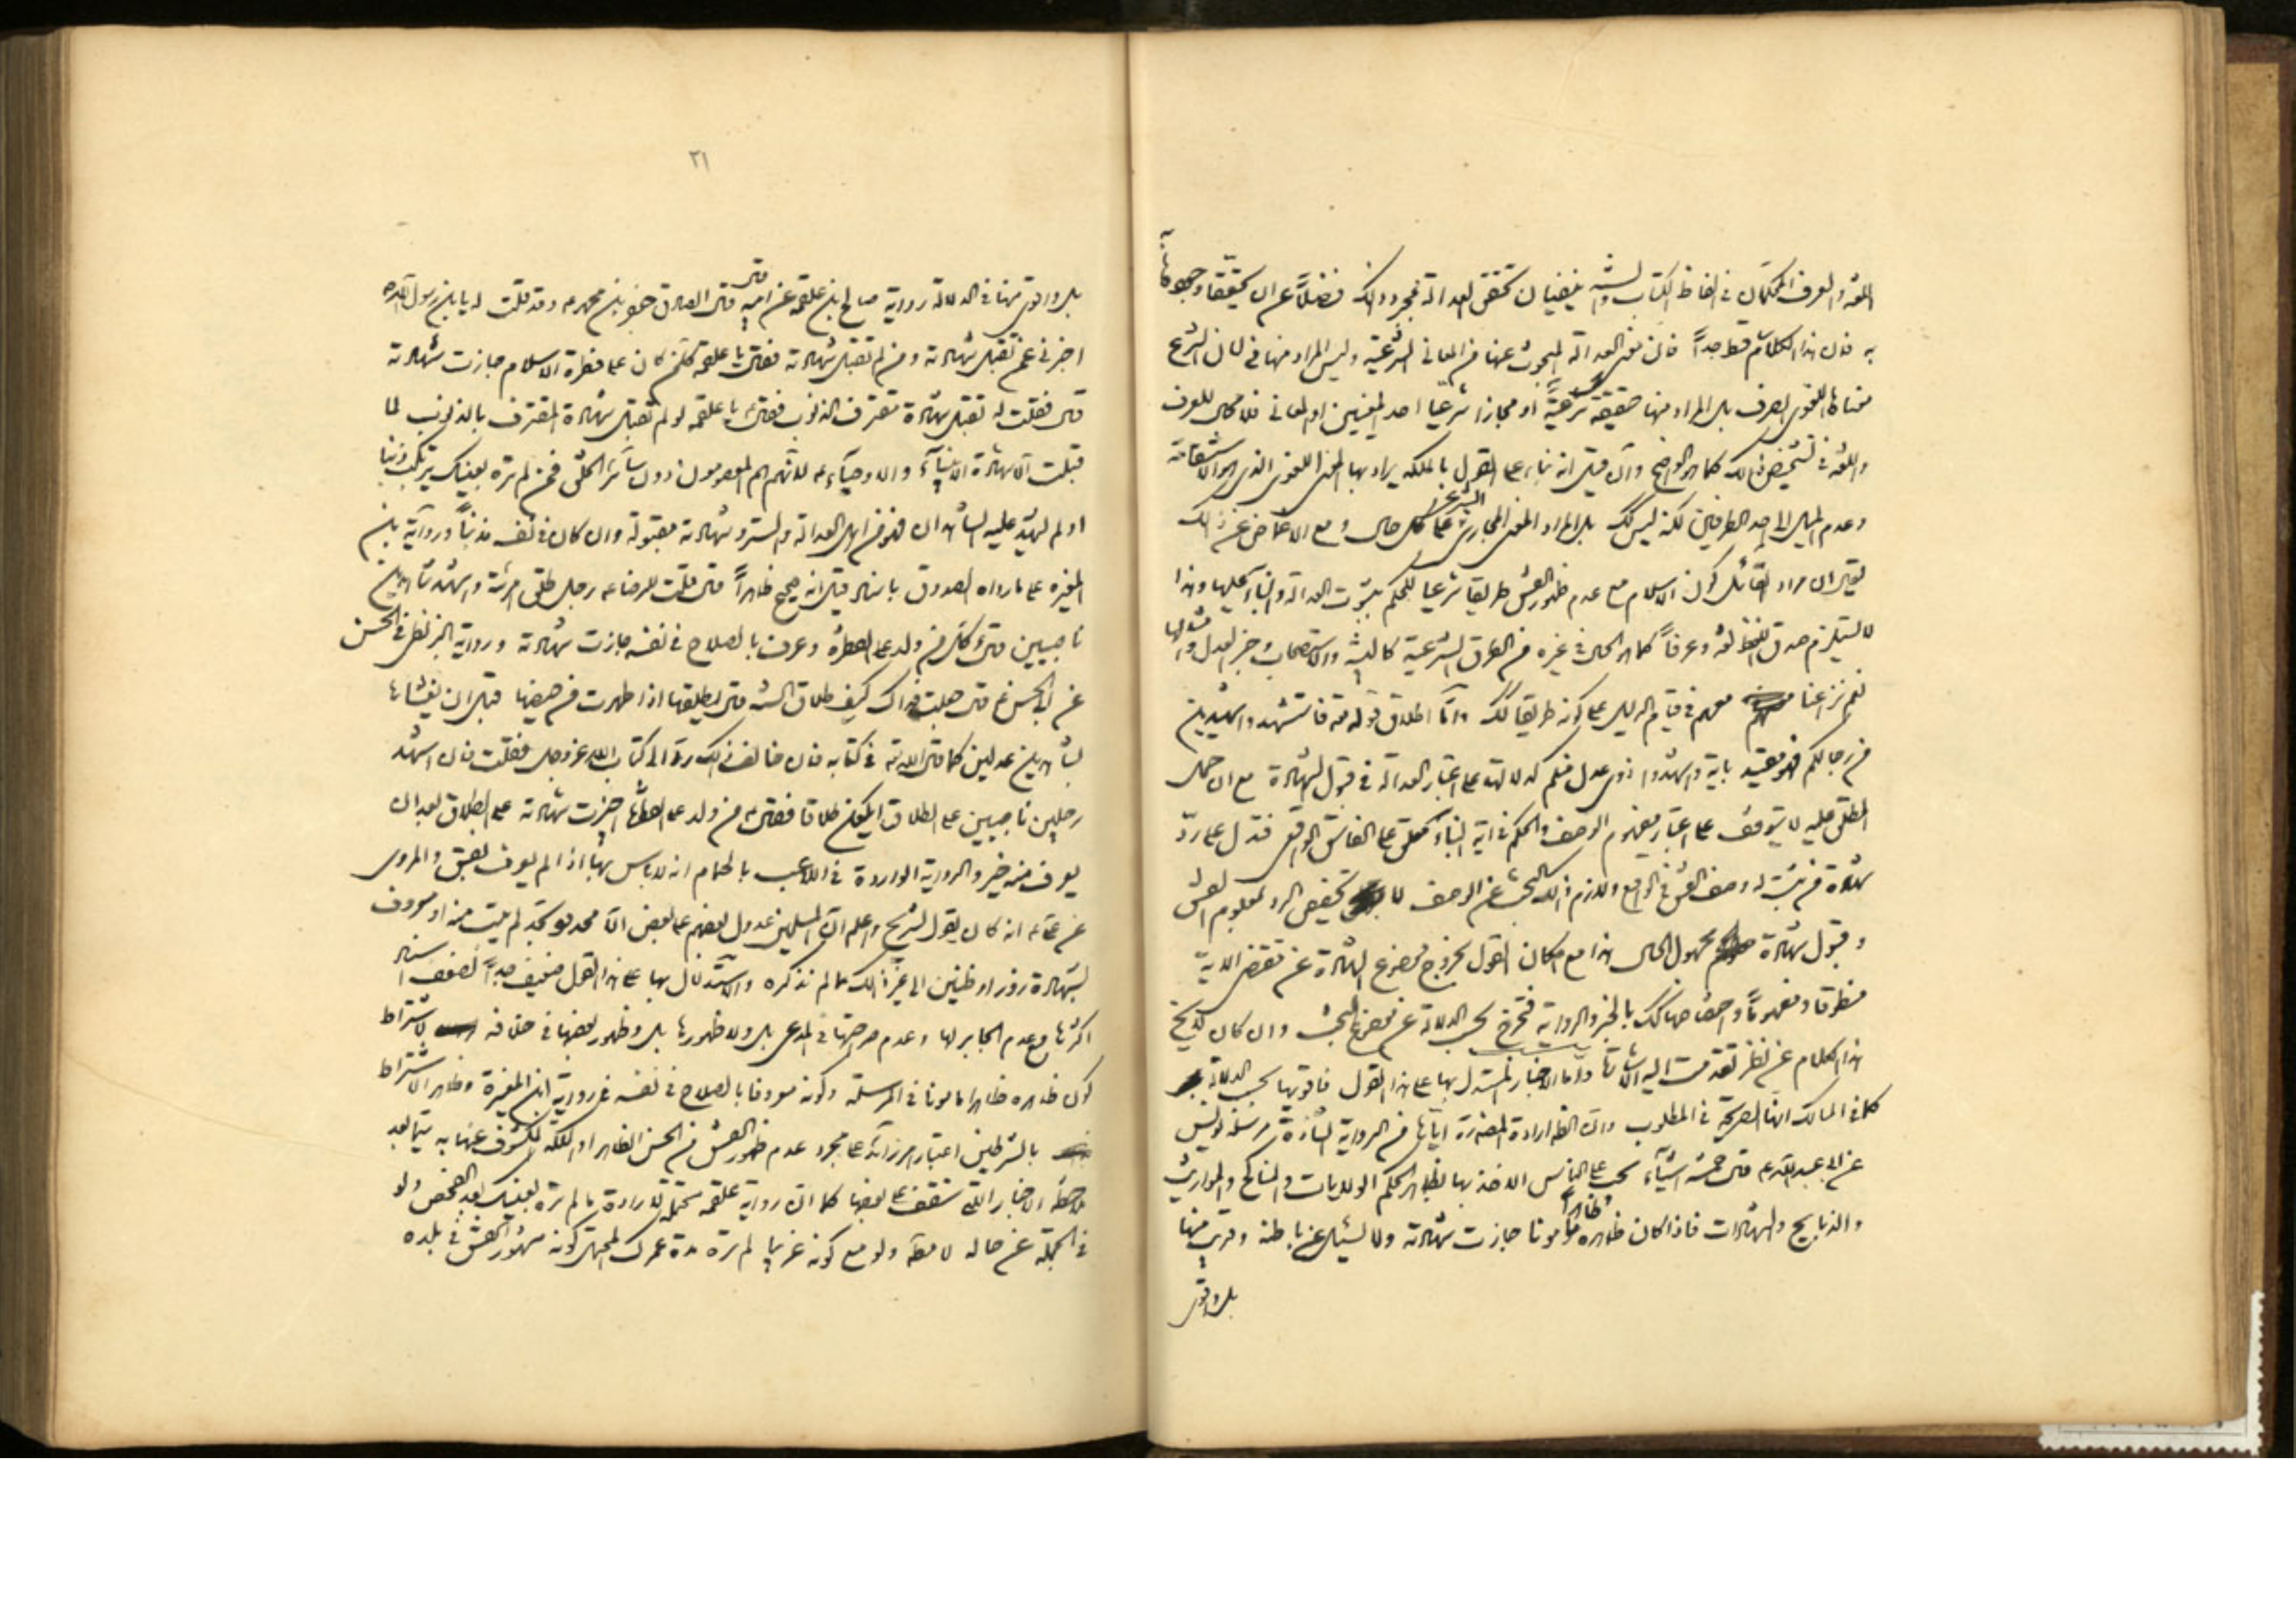 اللغة والعرف المحكمان في الفاظ الكتاب والسنة يقتضيان تحقق العدالة بمجرد ذلك فضلا عن ان تحققها وجودها
به فان هذا الكلام سقط جدا فان معنى العدالة المبحوث عنها من المعاني الشرعية وليس المراد منها في لسان الشرع
معناها اللغوي الصرف بل المراد منها حقيقة شرعية او مجازا شرعيا احد المعنيين او المعاني فلا مجال للعرف
واللغة في تشخيص ذلك كما هو الواضح وان قيل انه بناء على القول بالملكة يراد بها المعنى اللغوي الذي هو الاستقامة
وعدم الميل الى احد الطرفين لكنه ليس كك بل المراد المعنى المجازي الشرعي على كل حال ومع الاغماض عن ذلك
يقال ان مراد القائل كون الاسلام مع عدم ظهور الفسق طريقا شرعيا للحكم بثبوت العدالة والبناء عليها وهذا
لا يستلزم صدق اللفظ لغة وعرفا كما هو الحال في غيره من الطرق الشرعية كالبينة والاستصحاب وخبر العدل وامثالها
نعم نزاعنا معهم في قيام الدليل على كونه طريقا كك واما اطلاق قوله تعه فاستشهدوا شهيدين
من رجالكم فهو مقيد باية واشهدوا ذوي عدل منكم لدلالته على اعتبار العدالة في قبول الشهادة مع ان حمل
المطلق عليه لا يتوقف على اعتبار مفهوم الوصف والحكم في اية النبأ معلق على الفاسق الواقعي فتدل على رد
شهادة من ثبت له وصف الفسق في الواقع واللازم من ذلك البحث عن الوصف لا تخصيص الرد بمعلوم الفسق
وقبول شهادة مجهول الحال هذا مع امكان القول بخروج موضوع الشهادة عن مقتضى الاية
منطوقا ومفهوما واختصاصها كك بالخبر والرواية فتخرج بحسب الدلالة عن موضوع البحث وان كان لا يخ
هذا الكلام عن نظر تقدمت اليه الاشارة واما الاخبار المستدل بها على هذا القول فاقويها بحسب الدلالة
كما في المسالك انها الصريحة في المطلوب وان الظ ارادة المقصود اياها من الرواية الشاذة مرسلة يونس
عن ابي عبد الله ع قال خمسة اشياء يجب على الناس الاخذ بها بظاهر الحكم الولايات والمناكح والمواريث
والذبايح والشهادات فاذا كان ظاهره ظاهرا مامونا جازت شهادته ولا يسئل عن باطنه وقريب منها
بل واقوى
٣١
بل واقوى منها في الدلالة رواية صالح ابن علقمة عن ابيه قال قال الصادق جعفر بن محمد ع وقد قلت له يا بن رسول الله
اخبرني عمن تقبل شهادته ومن لم تقبل شهادته فقال يا علقمة كل من كان على فطرة الاسلام جازت شهادته
قال فقلت له تقبل شهادة مقترف الذنوب فقال يا علقمة لو لم تقبل شهادة المقترف بالذنوب لما
قبلت الا شهادة الانبياء والاوصياء ع لانهم هم المعصومون دون سائر الخلق فمن لم تره بعينك يرتكب ذنبا
او لم يشهد عليه شاهدان فهو من اهل العدالة والستر وشهادته مقبولة وان كان في نفسه مذنبا ورواية بن
المغيرة على ما رواه الصدوق باسناد قيل انه صحيح ظاهرا قال قلت للرضا ع رجل طلق امرئته واشهد شاهدين
ناصبيين قال كل من ولد على الفطرة وعرف بالصلاح في نفسه جازت شهادته ورواية البزنطي في الحسن
عن ابي الحسن ع قال جعلت فداك كيف طلاق السنة قال يطلقها اذا طهرت من حيضها قبل ان يغشاها
بشاهدين عدلين كما قال الله تعه في كتابه فان خالف ذلك رد الى كتاب الله عز وجل فقلت فان اشهد
رجلين ناصبيين على الطلاق ايكون طلاقا فقال من ولد على الفطرة اجيزت شهادته على الطلاق بعد ان
يعرف منه خير والرواية الواردة في اللاعب بالحمام انه لا باس بها اذا لم يعرف بفسق والمروي
عن علي ع انه كان يقول لشريح واعلم ان المسلمين عدول بعضهم على بعض الا مجلود بحد لم يتب منه او معروف
بشهادة زور او ظنين الى غير ذلك مما لم نذكره والاستدلال بها على هذا القول ضعيف جدا لضعف اسناد
اكثرها مع عدم الجابر لها وعدم صراحتها في المدعى بل ولا ظهورها بل وظهور بعضها في خلافه لاشتراط
كون ظاهره ظاهرا مامونا في المرسلة وكونه معروفا بالصلاح في نفسه في رواية ابن المغيرة وظاهر الاشتراط
بالشرطين اعتبار امر زائد على مجرد عدم ظهور الفسق من الحسن الظاهر او الملكة المكشوف عنها به سيما بعد
ملاحظة الاخبار التي ستقف على بعضها كما ان رواية علقمة محتملة لارادة ما لم تره بعينك بعد الفحص ولو
في الجملة عن حاله لا مطلقا ولو مع كونه غريبا لم تره مدة عمرك المحتمل كونه مشهورا بالفسق في بلده